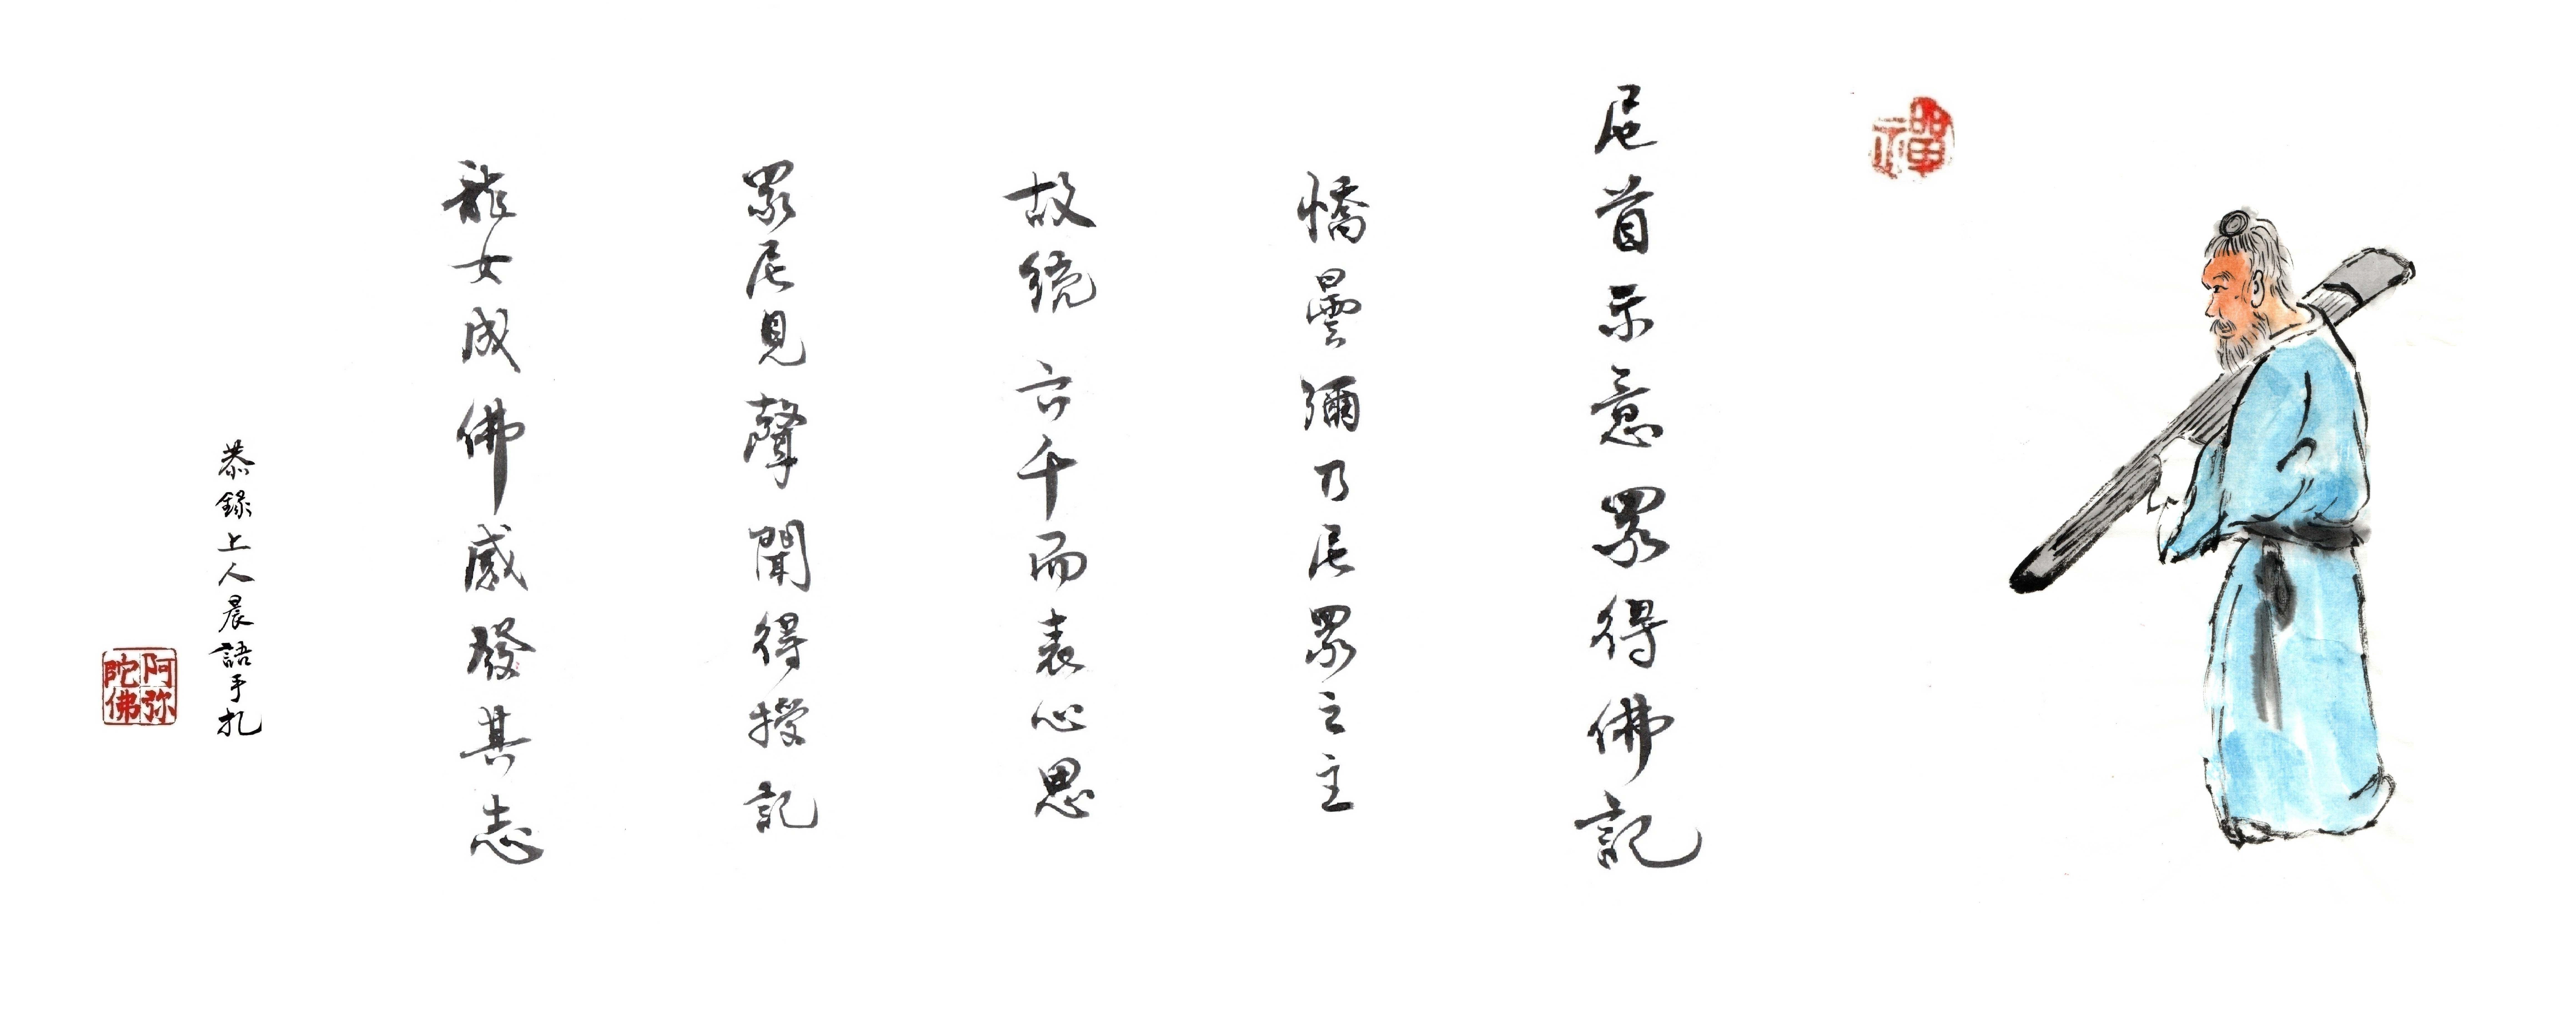 禪
尼首示意眾得佛記
憍曇彌乃尼眾之主
故統六千而表心思
眾尼見聲聞得授記
龍女成佛感發其志
恭錄上人晨語手札
阿弥陀佛